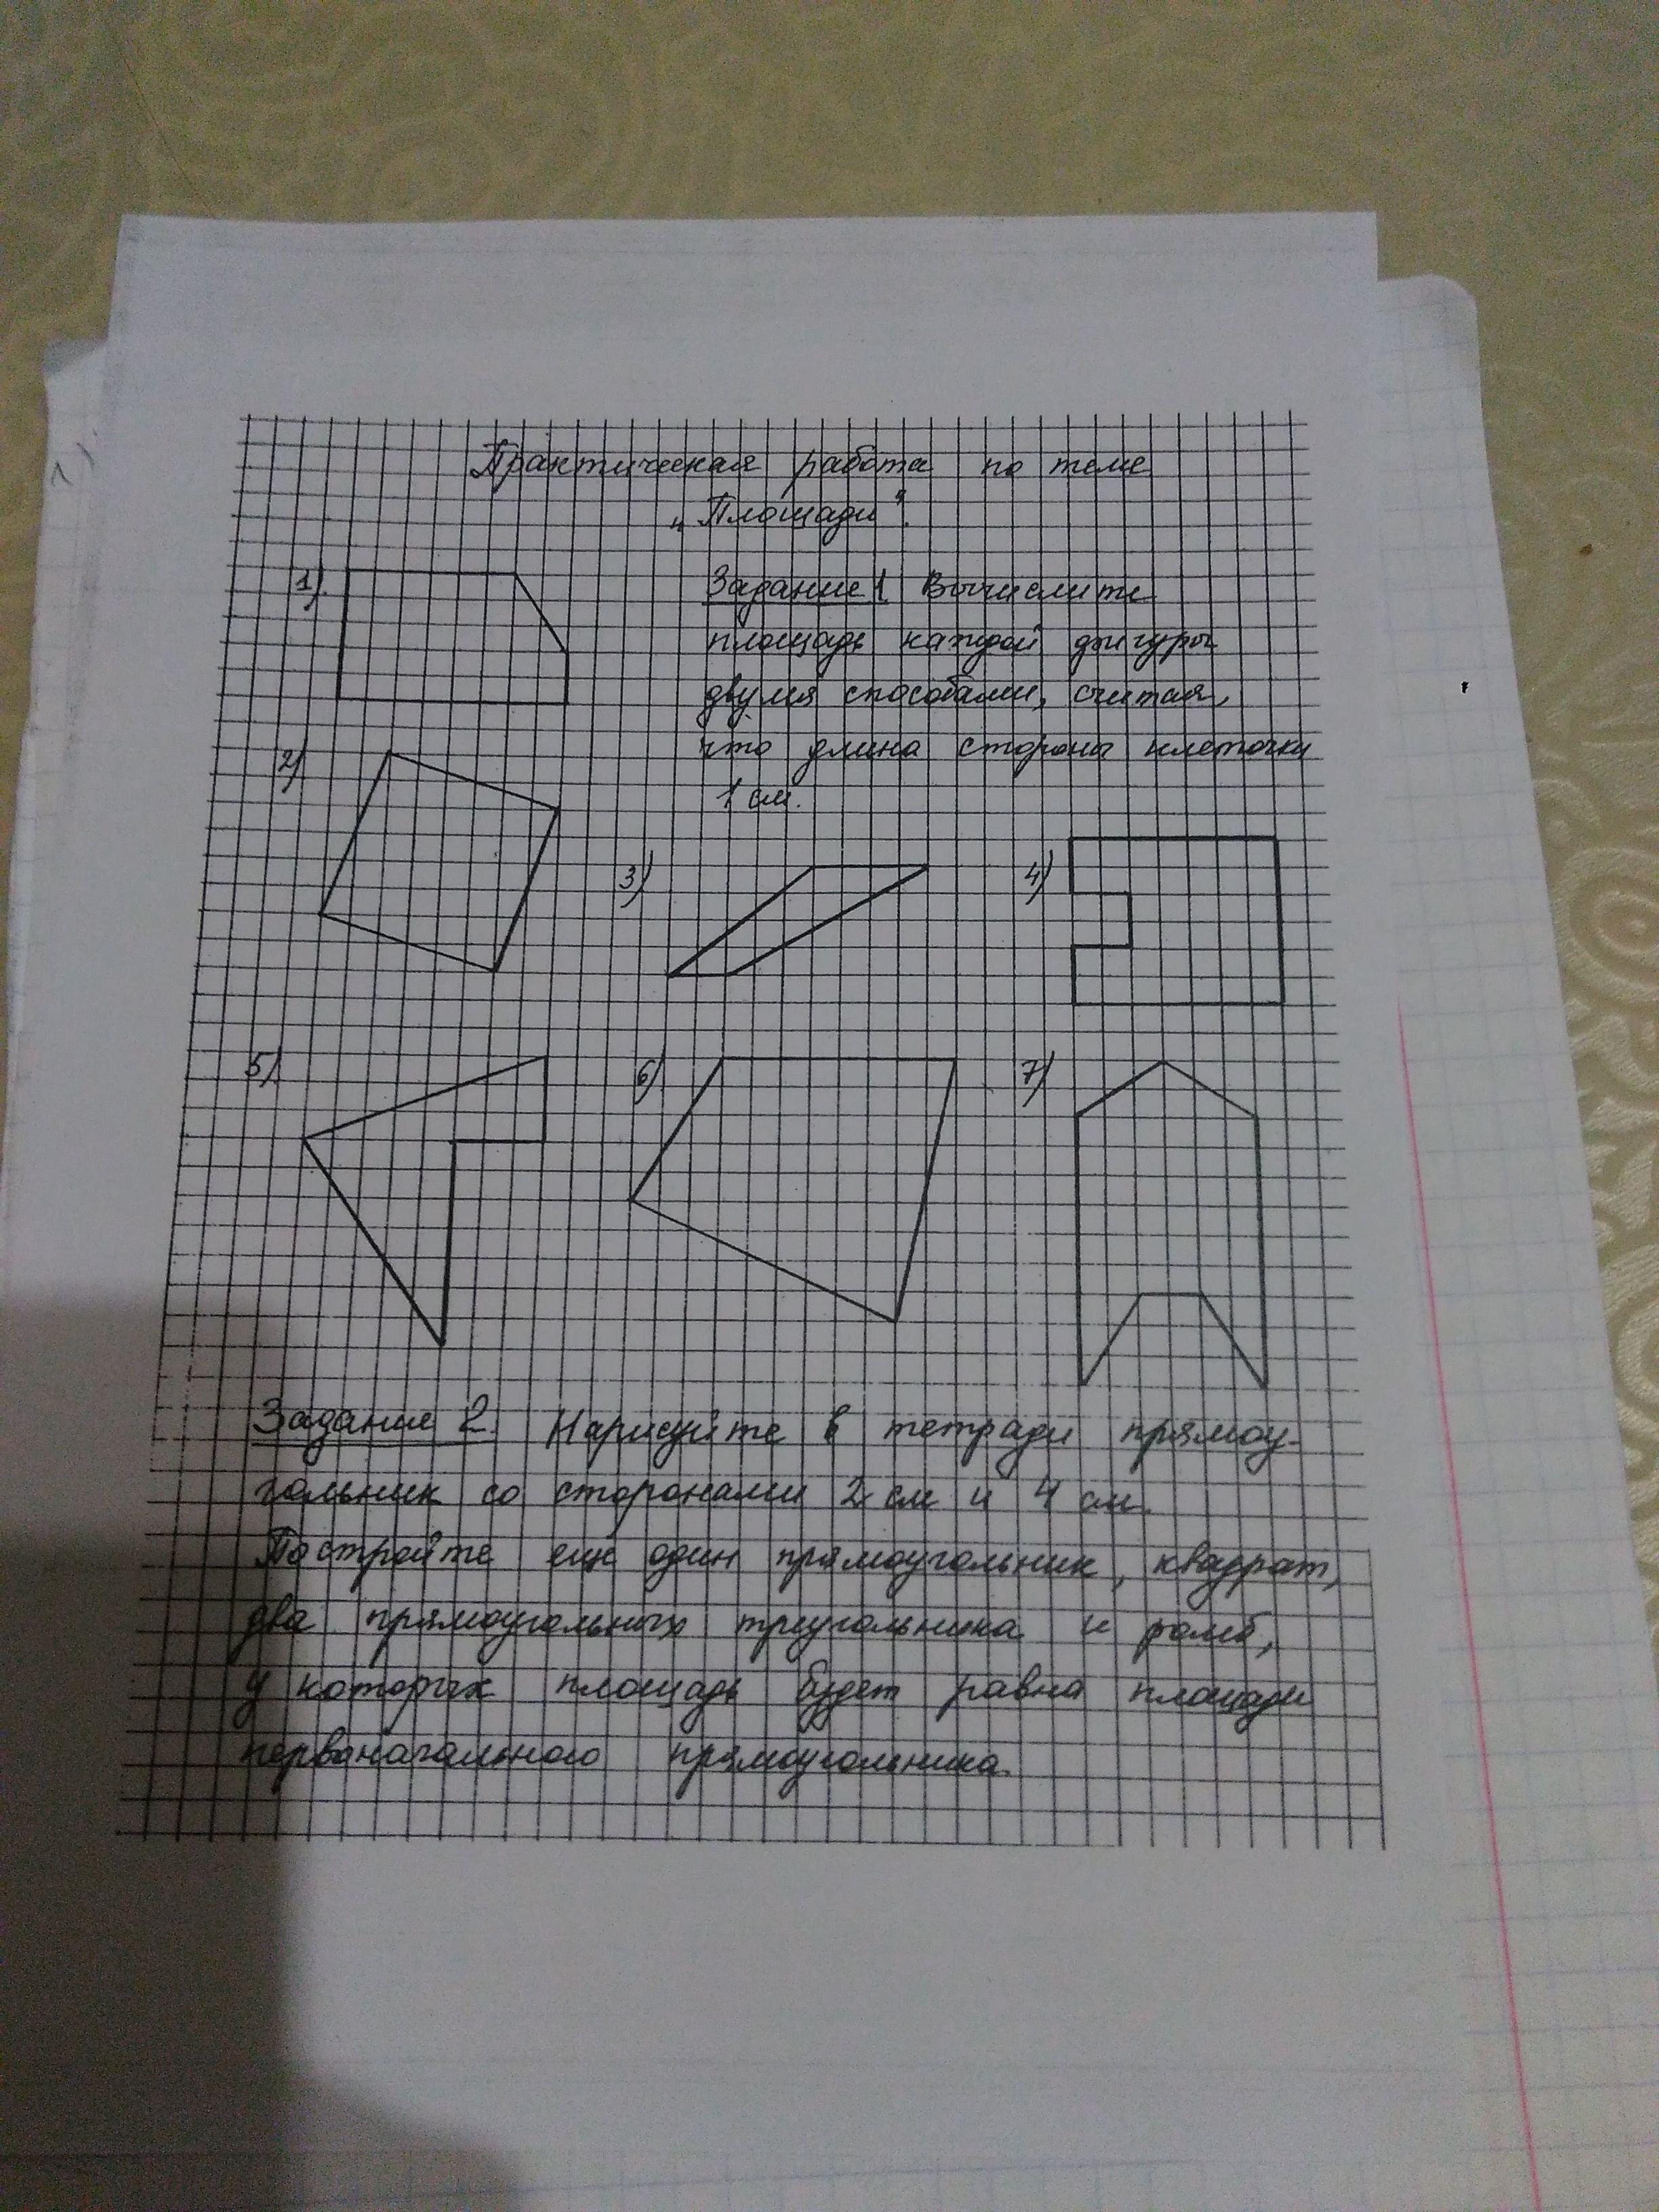 Практическая работа по теме
"Площади".
1). Задание 1. Вычислите
площадь каждой фигуры
двумя способами, считая,
2) что длина стороны клеточки
1 см.
3) 4)
5) 6) 7)
Задание 2. Нарисуйте в тетради прямоу-
гольник со сторонами 2 см и 4 см.
Постройте еще один прямоугольник, квадрат,
два прямоугольных треугольника и ромб,
у которых площадь будет равна площади
первоначального прямоугольника.